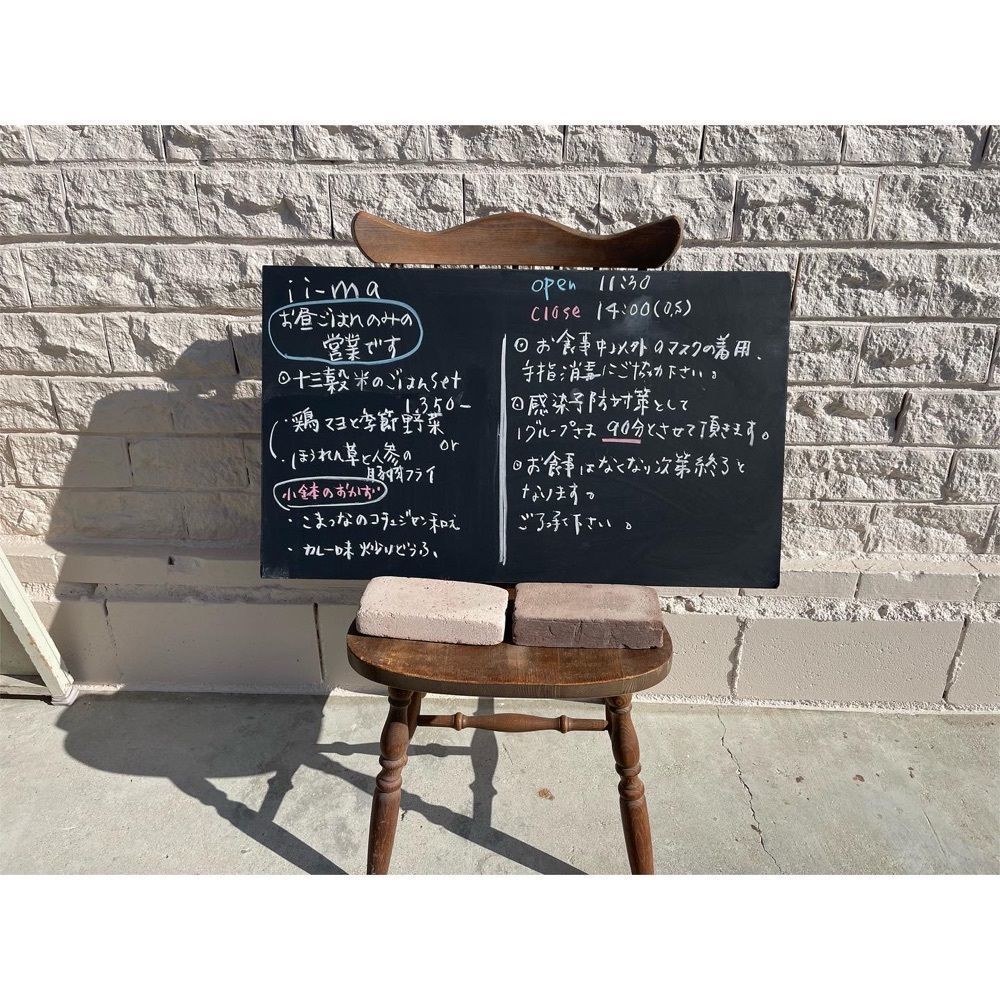 ii-ma
お昼ごはんのみの
営業です
⊙十三穀米のごはんset
1,350-
・鶏マヨと季節野菜
or
・ほうれん草と人参の
豚肉フライ
小鉢のおかず
・こまつなのコテージセン和え
・カレー味炒りどうふ、
open 11:30
close 14:00(O,S)
⊙お食事中以外のマスクの着用、
手指消毒にご協力下さい。
⊙感染予防対策として
1グループさま90分とさせて頂きます。
⊙お食事はなくなり次第終了と
なります。
ご了承下さい。